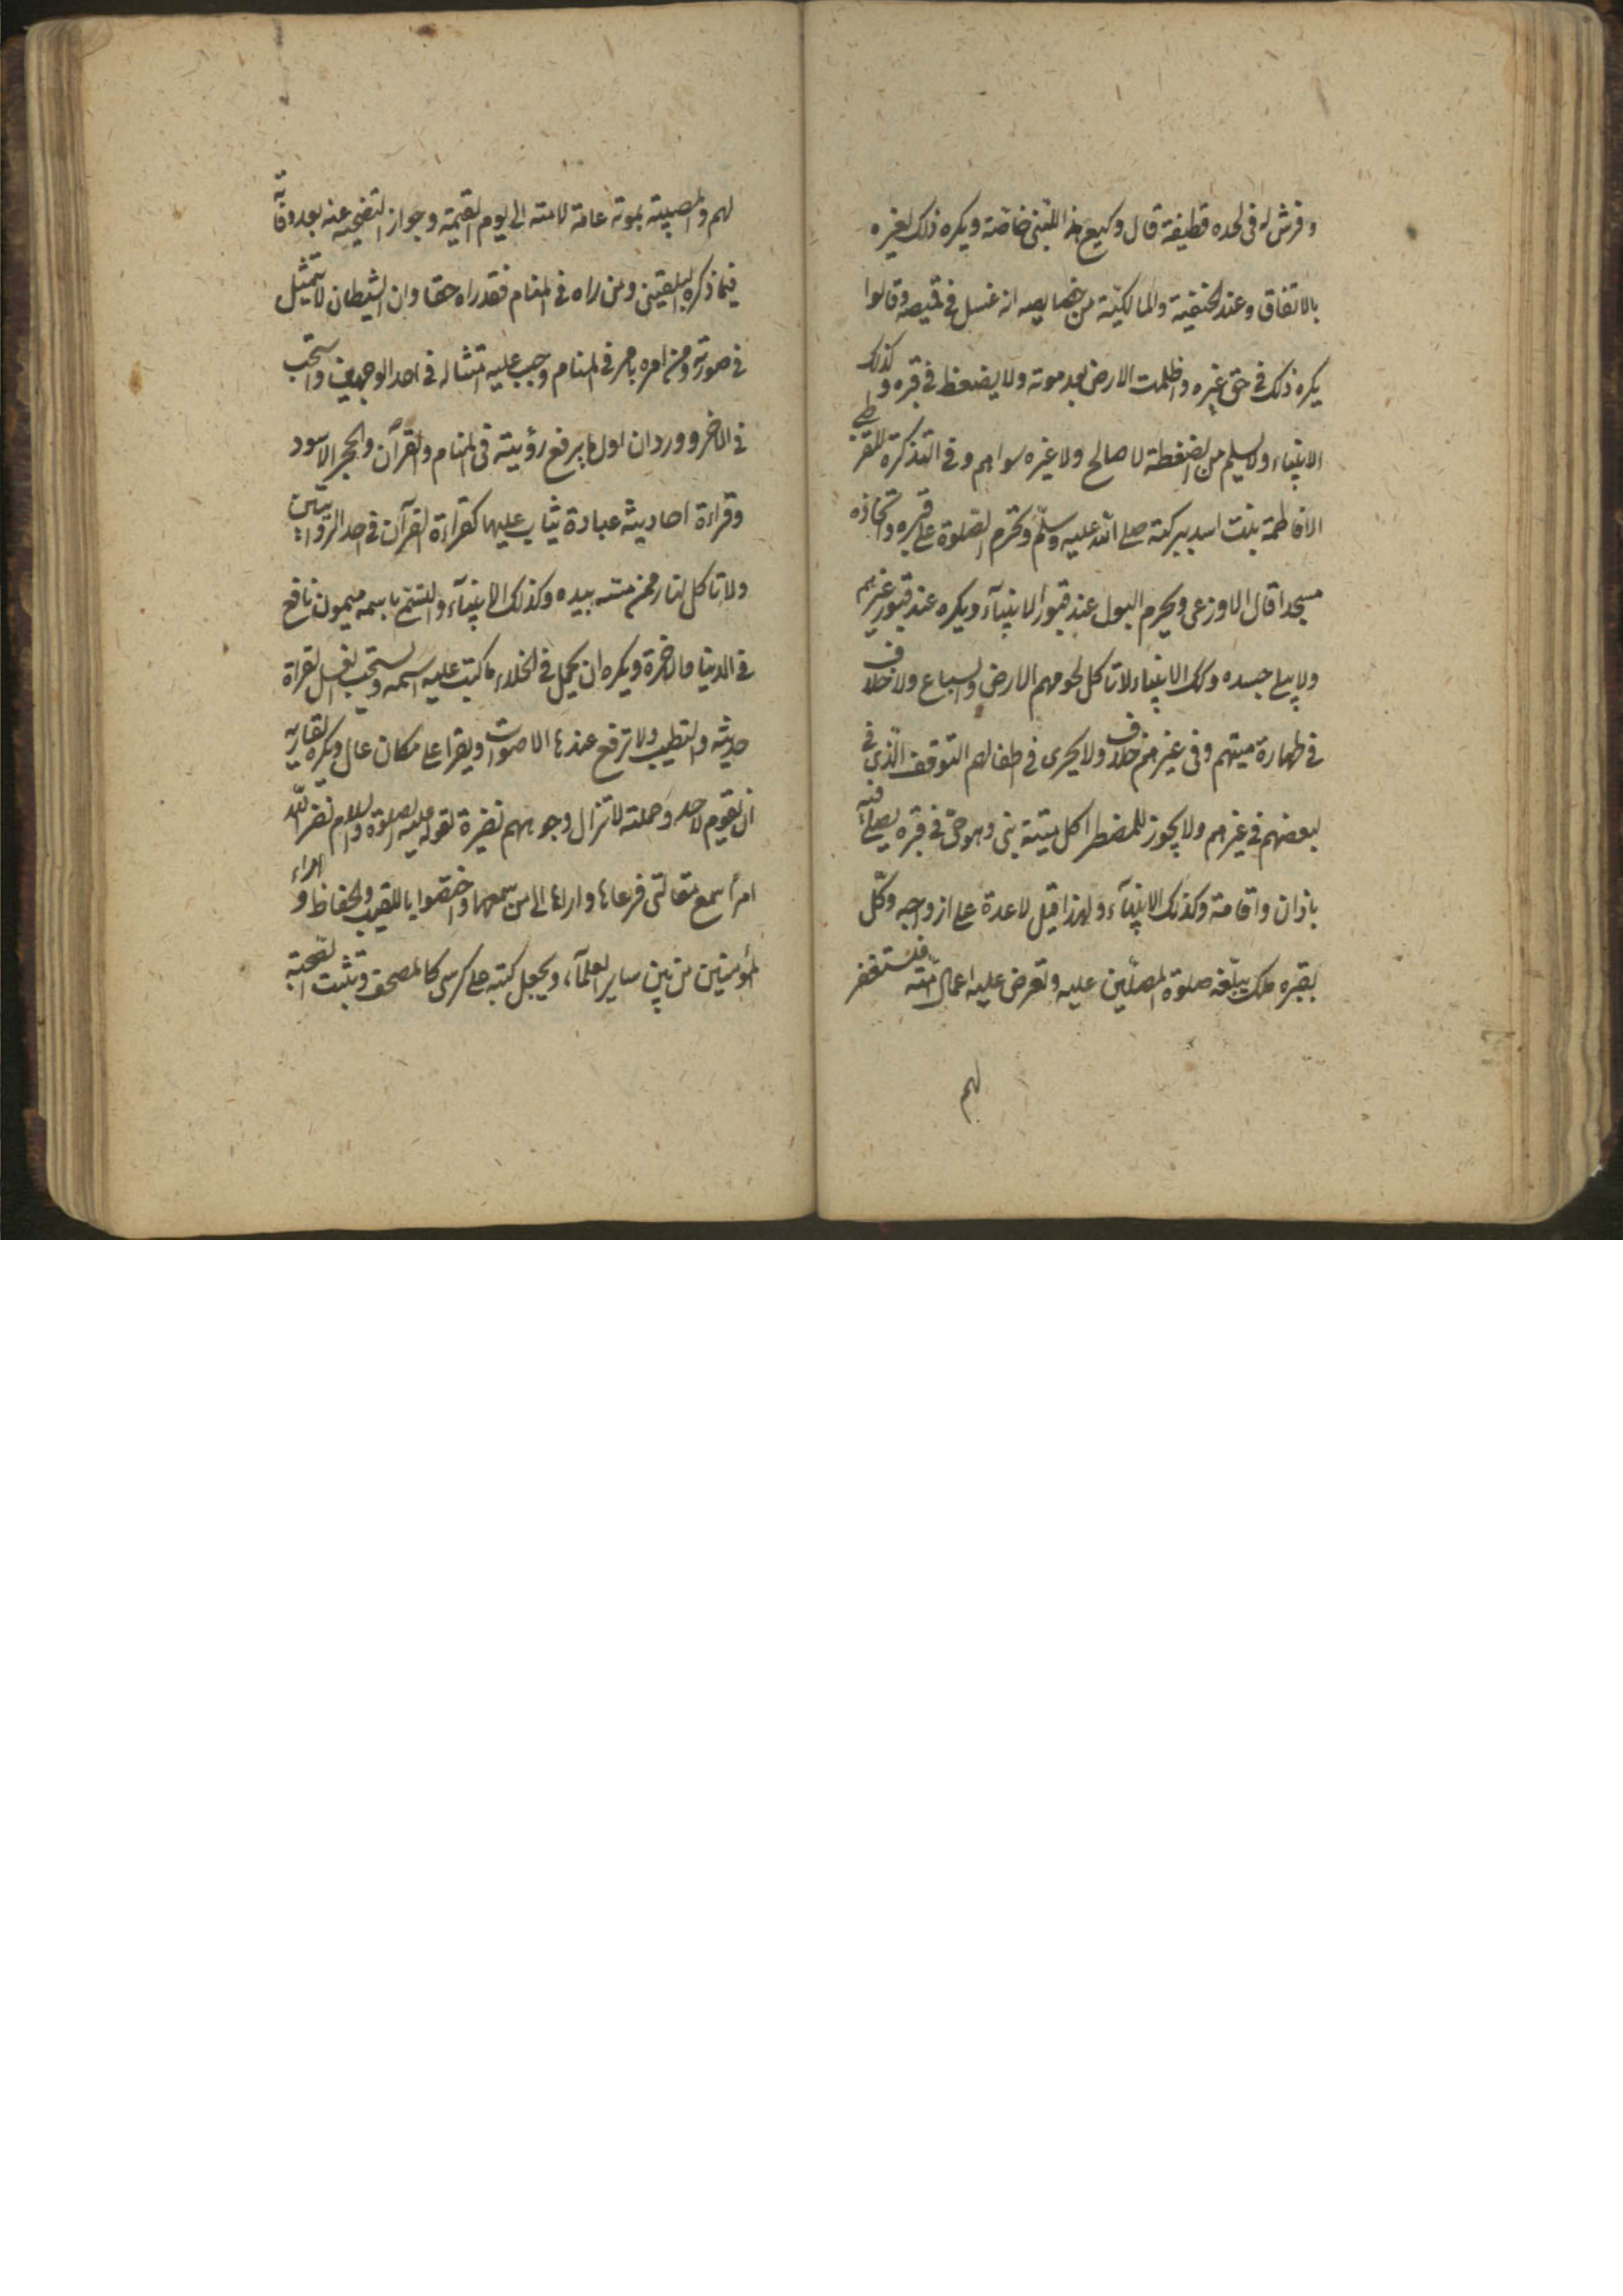 وفرش له فى لحده قطيفة قال وكيع هذا للنبى خاصّة ويكره ذلك لغيره
بالاتفاق وعند الحنفية والمالكيّة من خصايصه انه غسل فى قميصه وقالوا
يكره ذلك فى حق غيره واظلمت الارض بعد موته ولا يضغط فى قبره وكذلك
الانبياء ولم يسلم من الضغطة لا صالح ولا غيره سواهم وفى التذكرة للقرطبى
الا فاطمة بنت اسد ببركته صلى الله عليه وسلّم وتحرم الصّلوة على قبره واتخاذه
مسجدا قال الاوزعى ويحرم البول عند قبور الانبيآء ويكره عند قبور غيرهم
ولا يبلى جسده وكك الانبياء لا تاكل لحومهم الارض والسباع ولا خلاف
فى طهارة ميتهم وفى غيرهم خلاف ولا يجرى فى اطفالهم التوقف الّذى فى
لبعضهم فى غيرهم ولا يجوز للمضطر اكل ميتة نبى وهو حىّ فى قبره يصلى فيه
باذان واقامة وكذلك الانبيآء ولهذا قيل لا عدة على ازواجه وكّل
بقبره ملك يبلّغه صلوة المصلّين عليه وتعرض عليه اعمال امّته فيستغفر
لهم
لهم والمصيبة بموته عامة لامته الى يوم القيمة وجواز التضحية عنه بعد وفاته
فيما ذكره البلقينى ومن راه فى المنام فقد راه حقا وان الشيطان لا يتمثيل
فى صورته ومن امره بامر فى المنام وجب عليه امتثاله فى احد الوجهين واستحب
فى الاخر وورد ان اول ما يرفع رؤيته فى المنام والقرآن والحجر الاسود
وقراءة احاديثه عبادة يثاب عليها كقراءة القرآن فى احد الروايتين
ولا تاكل النار ممن مسته بيده وكذلك الانبيآء والتسمّى باسمه ميمون نافع
فى الدنيا والاخرة ويكره ان يحمل فى الخلاء ما كتب عليه اسمه ويستحب الغسل لقراة
حديثه والتطيب ولا ترفع عندها الاصوات ويقرا على مكان عال ويكره لقاريه
ان يقوم لاحد وحملته لا تزال وجوههم نضيرة لقوله عليه الصلوة والسلام نضر الله
امرأ سمع مقالتى فرعاها واداها الى من سمعها واختصّوا بالتلقيب والحفاظ وامراء
المؤمنين من بين ساير العلمآء ويجعل كتبه على كرسى كالمصحف وتثبت الصحبة